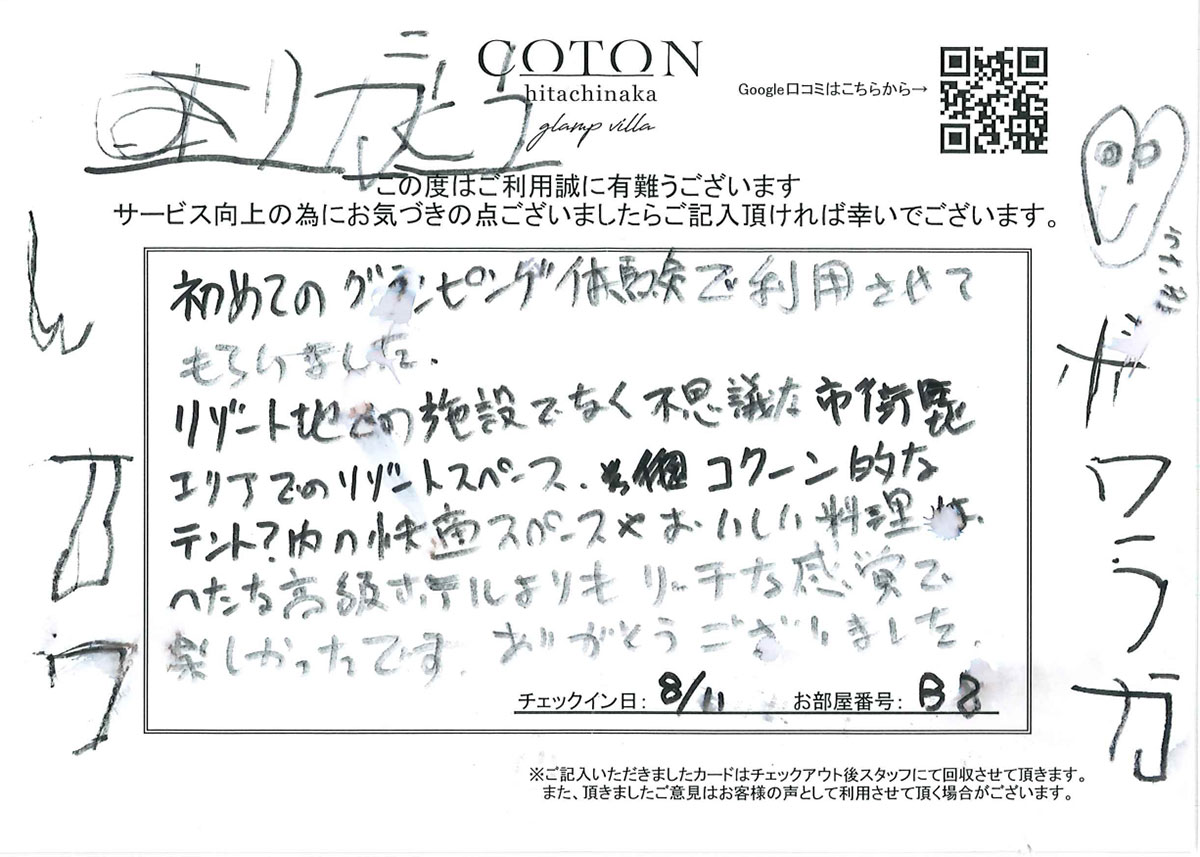 ありがとう
COTON
hitachinaka
glamp villa
Google口コミはこちらから→
この度はご利用誠に有難うございます
サービス向上の為にお気づきの点ございましたらご記入頂ければ幸いでございます。
初めてのグランピング体験で利用させて
もらいました。
リゾート地での施設でなく不思議な市街
エリアでのリゾートスペース. コクーン的な
テント?内の快適スペースとおいしい料理は、
へたな高級ホテルよりもリッチな感覚で
楽しかったです。ありがとうございました。
チェックイン日: 8/11 お部屋番号: B8
※ご記入いただきましたカードはチェックアウト後スタッフにて回収させて頂きます。
また、頂きましたご意見はお客様の声として利用させて頂く場合がございます。
ワラガ